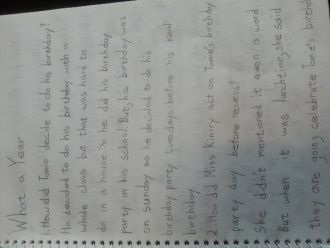 What a Year
1. How did Tomie decide to do his birthday?
He decided to do his birthday with a
whole class but that was hard to
do in a house. So he did his birthday
party in his school. But, his birthday was
on Sunday so he decided to do his
birthday party two days before his real
birthday.
2. How did Miss Kiniry act on Tomie's birthday
party day before recess?
She didn't mentioned it even a word.
But when it was lunchtime, she said
they are going celebrate Tomie's birthd